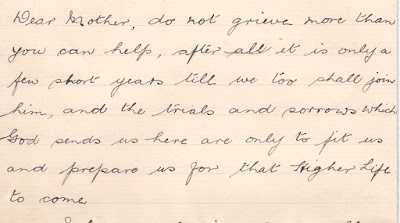 Dear Mother, do not grieve more than
you can help, after all it is only a
few short years till we too shall join
him, and the trials and sorrows which
God sends us here are only to fit us
and prepare us for that Higher Life
to come